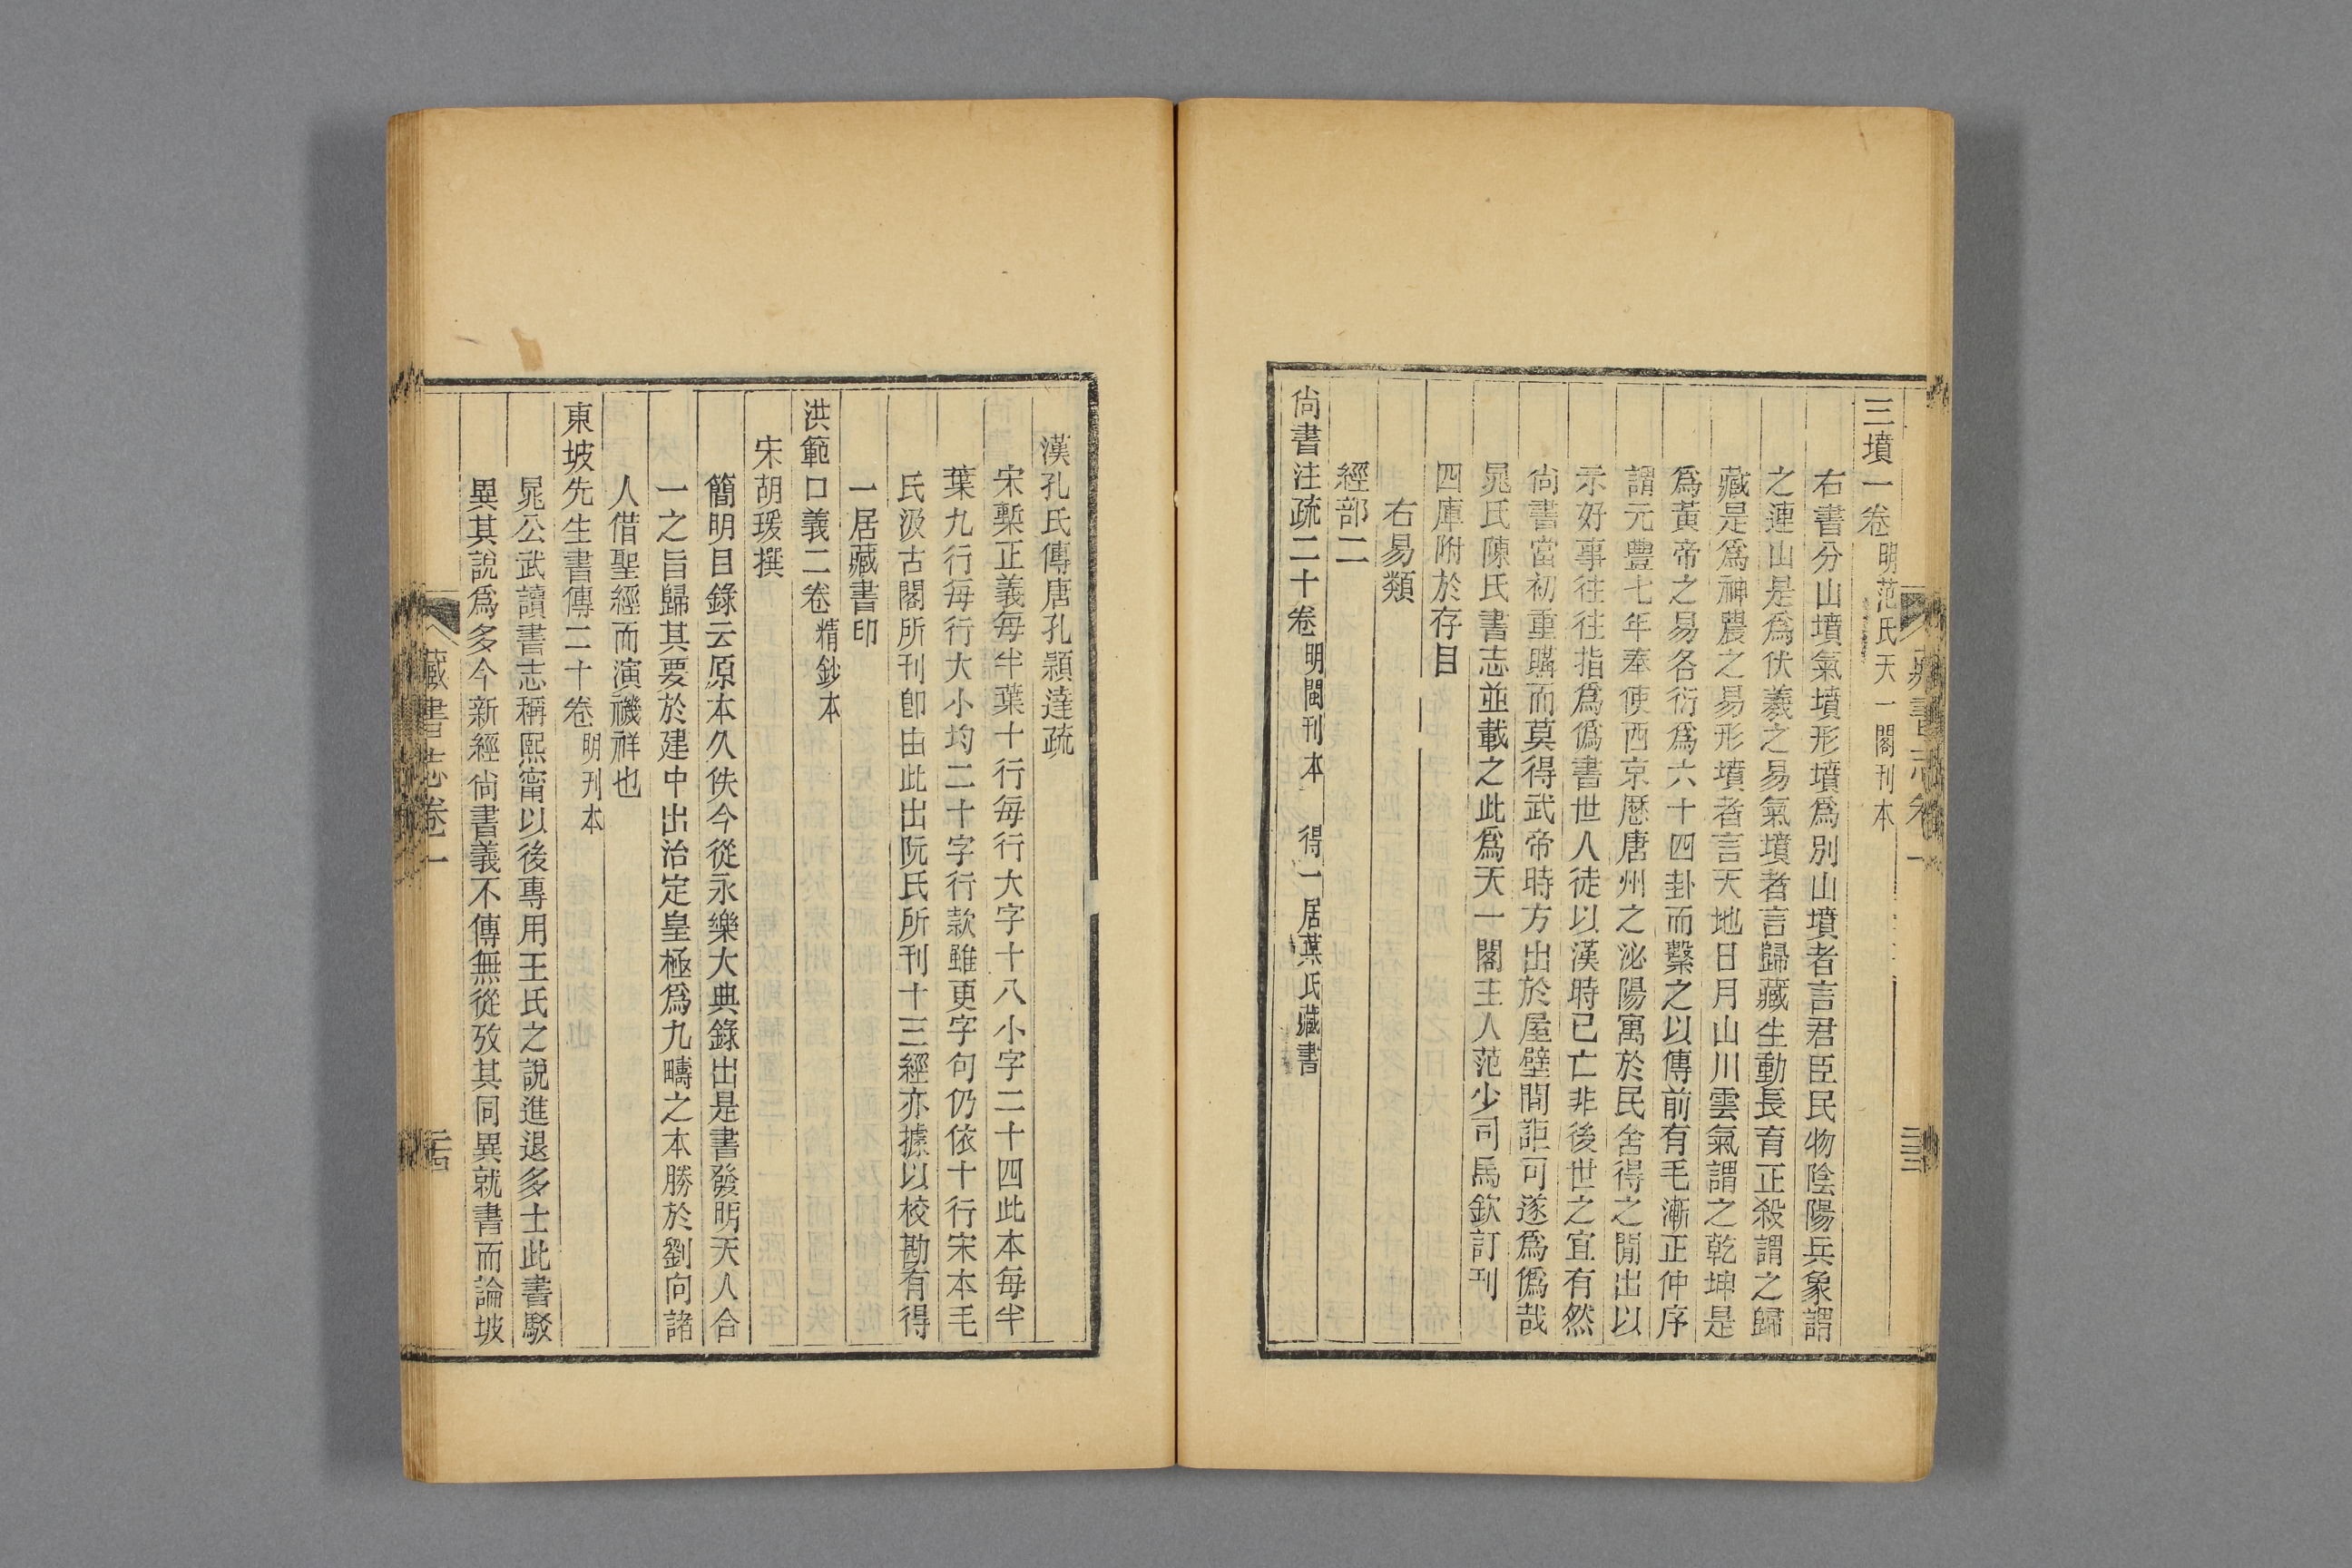 三墳一卷明范氏天一閣刊本
右書分山墳氣墳形墳爲別山墳者言君臣民物陰陽兵象謂
之連山是爲伏羲之易氣墳者言歸藏生動長育正殺謂之歸
藏是爲神農之易形墳者言天地日月山川雲氣謂之乾坤是
爲黃帝之易各衍爲六十四卦而繫之以傳前有毛漸正仲序
謂元豐七年奉使西京歷唐州之泌陽寓於民舍得之閒出以
示好事往往指爲僞書世人徒以漢時已亡非後世之宜有然
尙書當初重購而莫得武帝時方出於屋壁間詎可遂爲僞哉
晁氏陳氏書志並載之此爲天一閣主人范少司馬欽訂刊
四庫附於存目
右易類
經部二
尙書注疏二十卷明閩刊本 得一居葉氏藏書
藏書志卷一
漢孔氏傳唐孔穎達疏
宋槧正義每半葉十行每行大字十八小字二十四此本每半
葉九行每行大小均二十字行款雖更字句仍依十行宋本毛
氏汲古閣所刊卽由此出阮氏所刊十三經亦據以校勘有得
一居藏書印
洪範口義二卷精鈔本
宋胡瑗撰
簡明目錄云原本久佚今從永樂大典錄出是書發明天人合
一之旨歸其要於建中出治定皇極爲九疇之本勝於劉向諸
人借聖經而演禨祥也
東坡先生書傳二十卷明刊本
晁公武讀書志稱熙甯以後專用王氏之說進退多士此書駁
異其說爲多今新經尙書義不傳無從攷其同異就書而論坡
藏書志卷一